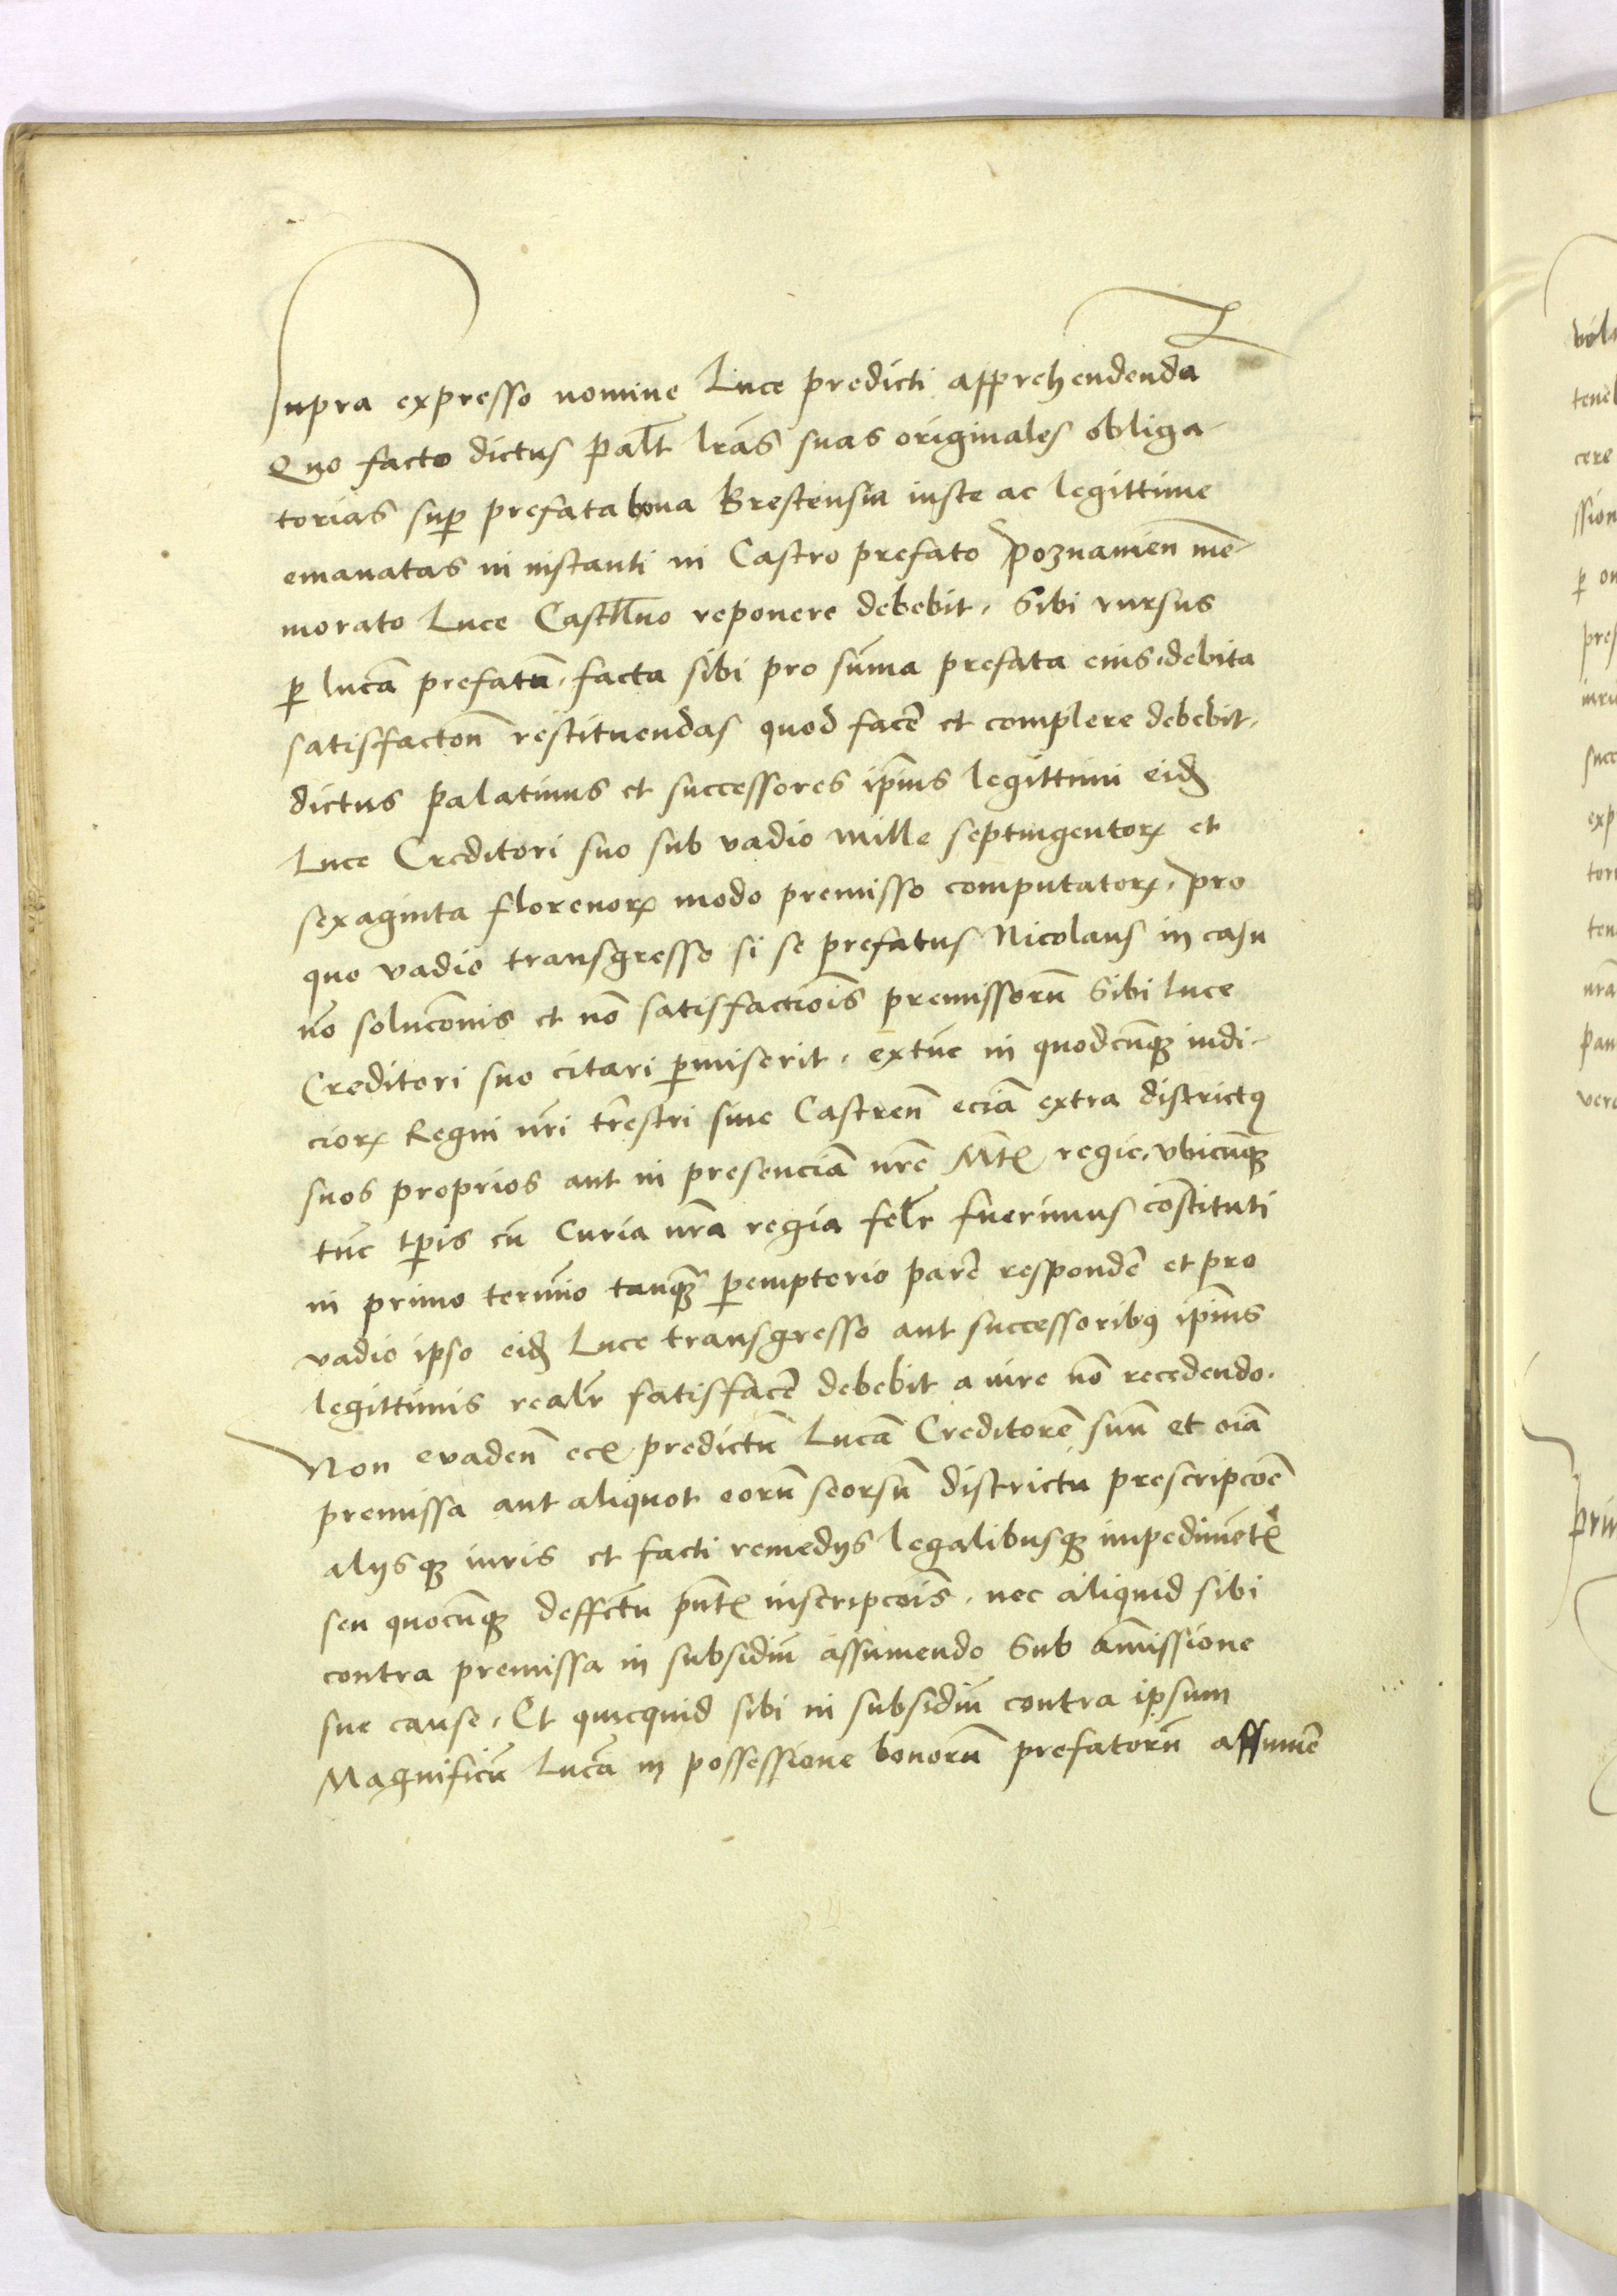 supra expresso nomine Luce predicti apprehendenda
Quo facto dictus palt̄ lrās suas originales obliga-
torias suꝑ prefata bona Brestensia iuste ac legittime
emanatas in instanti in Castro prefato poznanien̄ me-
morato Luce Castll̄no reponere debebit, Sibi rursus
ꝑ lucā prefatū, facta sibi pro sūma prefata eius debita
satisfacton̄ restituendas quod facē et complere debebit,
dictus palatinus et successores ip̄ius legittimi eidꝫ
Luce Creditori suo sub vadio mille septingentoꝝ et
sexaginta florenoꝝ modo premisso computatoꝝ, pro
quo vadio transgresso si se prefatus Nicolaus in casu
nō solucōnis et nō satisfactiōis premissorū Sibi luce
Creditori suo citari ꝑmiserit, extūc in quodcūqꝫ iudi-
cioꝝ Regni nr̄i tr̄estri siue Castren̄ eciā extra districtꝰ
suos proprios aut in presenciā nr̄e Mtꝭ regie, vbicūqꝫ
tūc tp̄is cū Curia nr̄a regia felr̄ fuerimus cōstituti
in primo termīo tanqꝫ̄ ꝑemptorio parē respondē et pro
vadio ipso eidꝫ Luce transgresso aut successoribꝰ ip̄ius
legittimis realr̄ satisfacē debebit a iure nō recedendo.
Non evaden̄ ecꝭ predictū Lucā Creditorē suū et oīa
premissa aut aliquot eorū seorsū districtu prescripcōē
alijsqꝫ iuris et facti remedijs legalibusqꝫ impedimētꝭ
seu quocūqꝫ deffctū pn̄tꝭ inscripcōis, nec aliquid sibi
contra premissa in subsidiū assumendo Sub amissione
sue cause, Et quicquid sibi in subsidiū contra ipsum
Magnificū Lucā in possessione bonorū prefatorū assumē